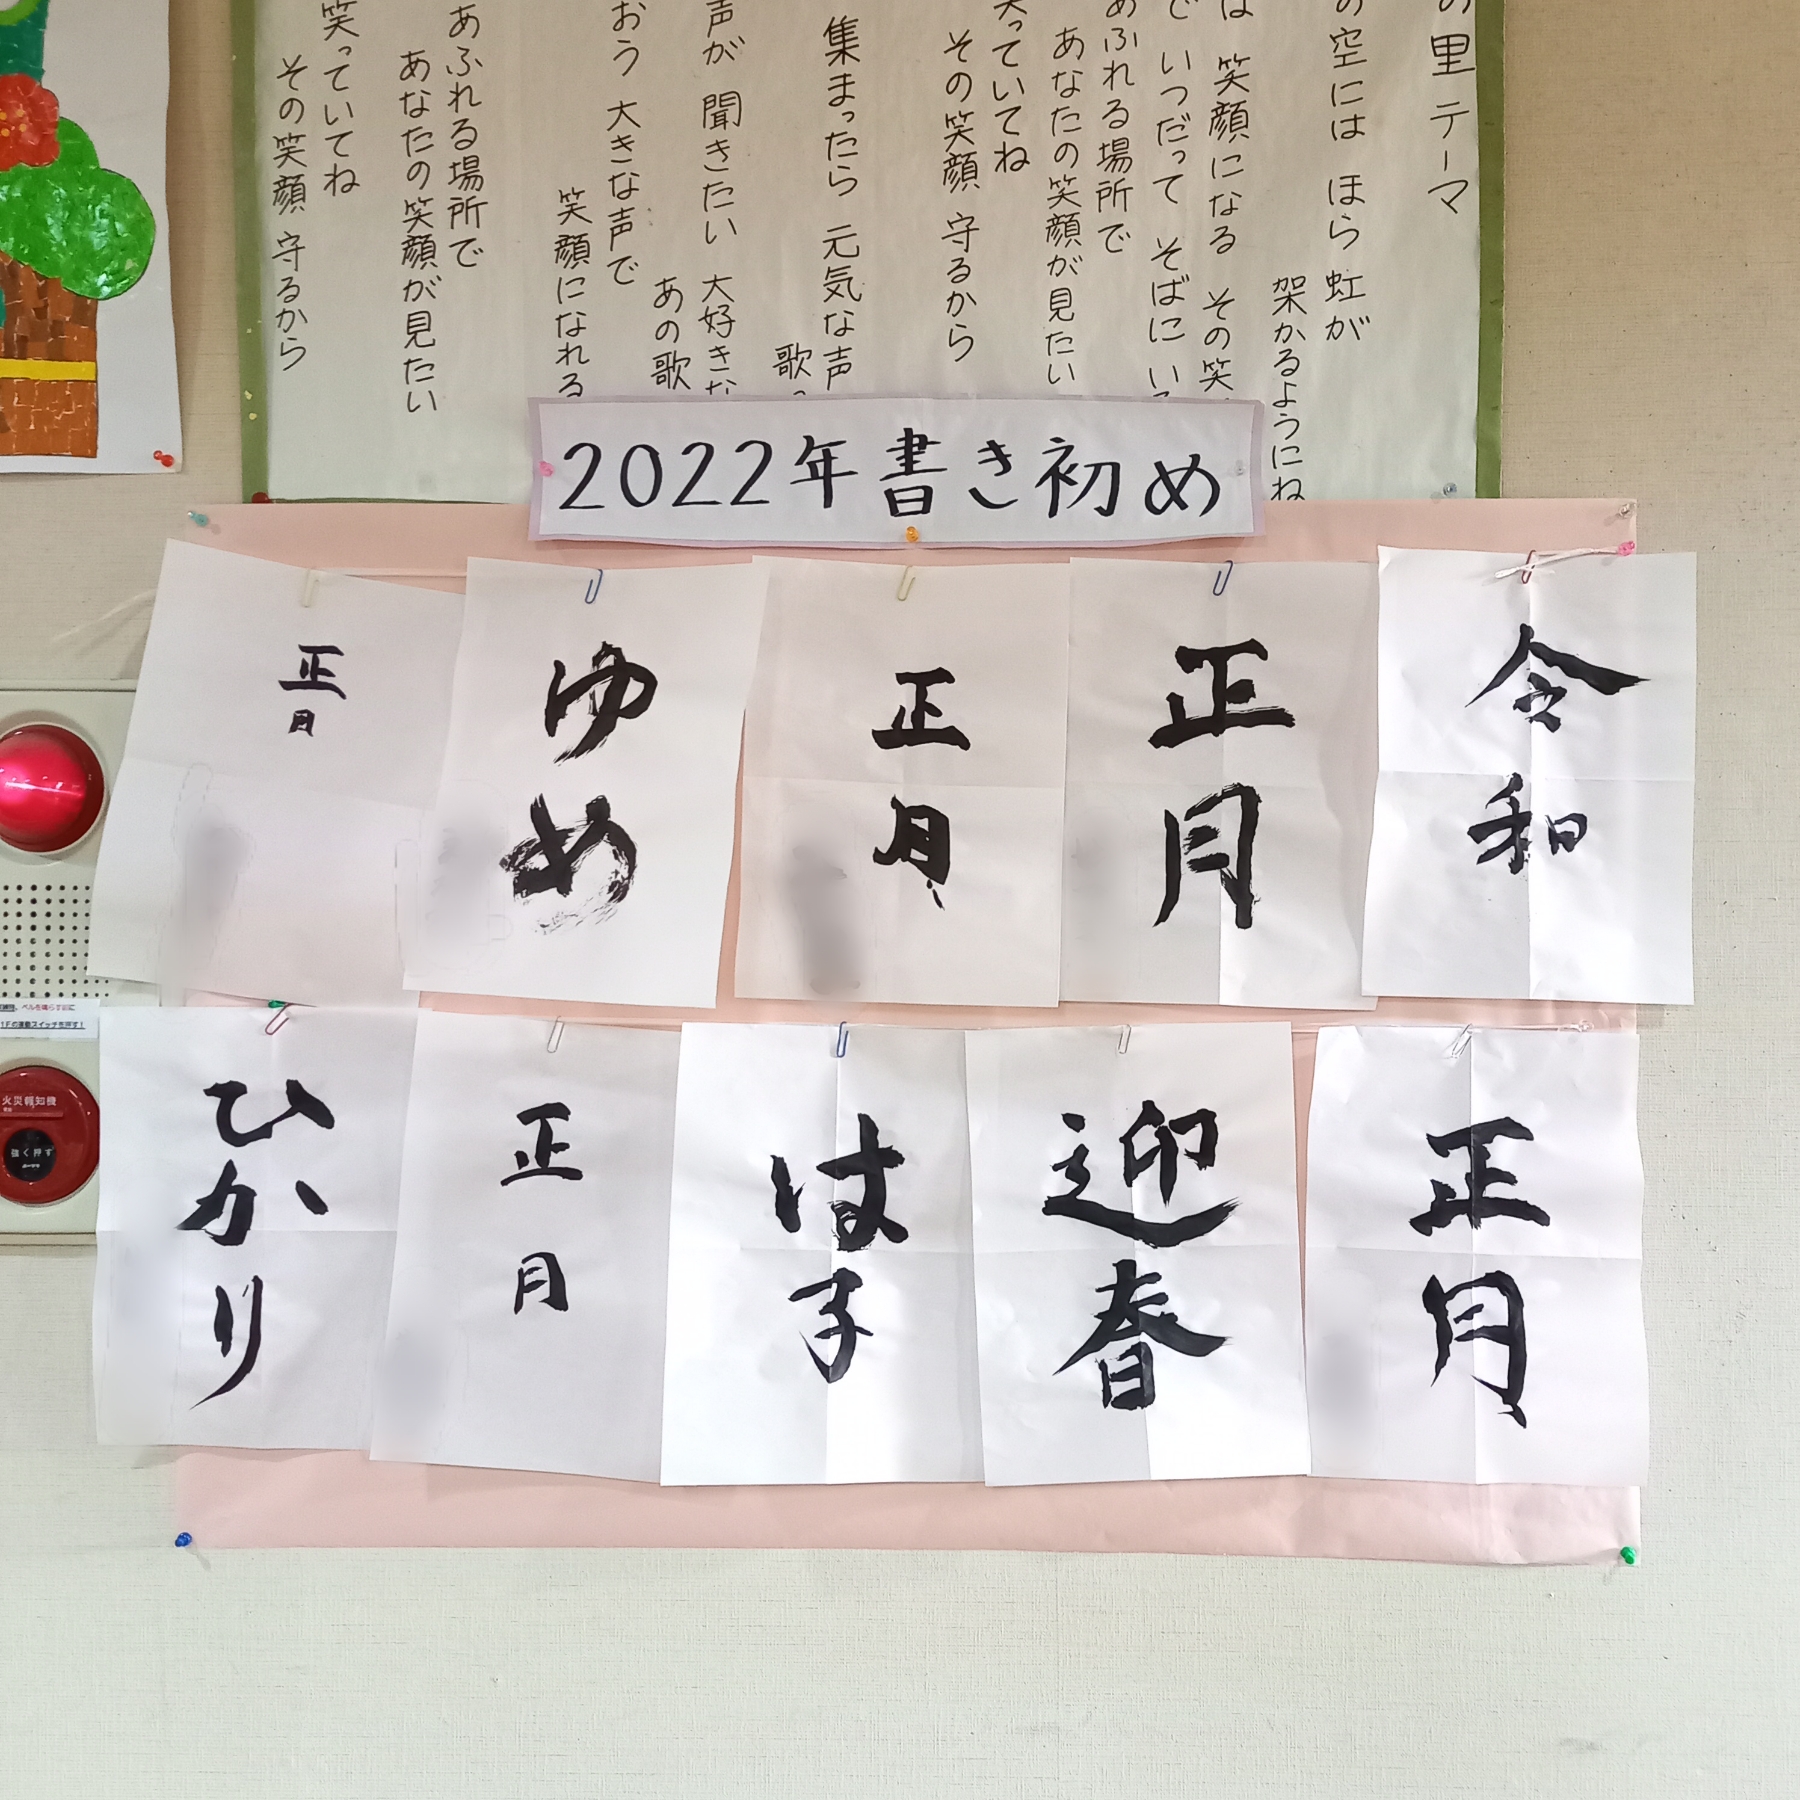 の里 テーマ
の空には ほら 虹が
架かるようにね
は 笑顔になる その笑
で いつだって そばに い
あふれる場所で
あなたの笑顔が見たい
笑っていてね
その笑顔 守るから
集まったら 元気な声
歌
声が 聞きたい 大好きな
あの歌
おう 大きな声で
笑顔になれる
あふれる場所で
あなたの笑顔が見たい
笑っていてね
その笑顔 守るから
2022年書き初め
令和
正月
正月
ゆめ
正月
正月
迎春
はる子
正月
ひかり
1Fの連動スイッチを押す!
火災報知機
強く押す